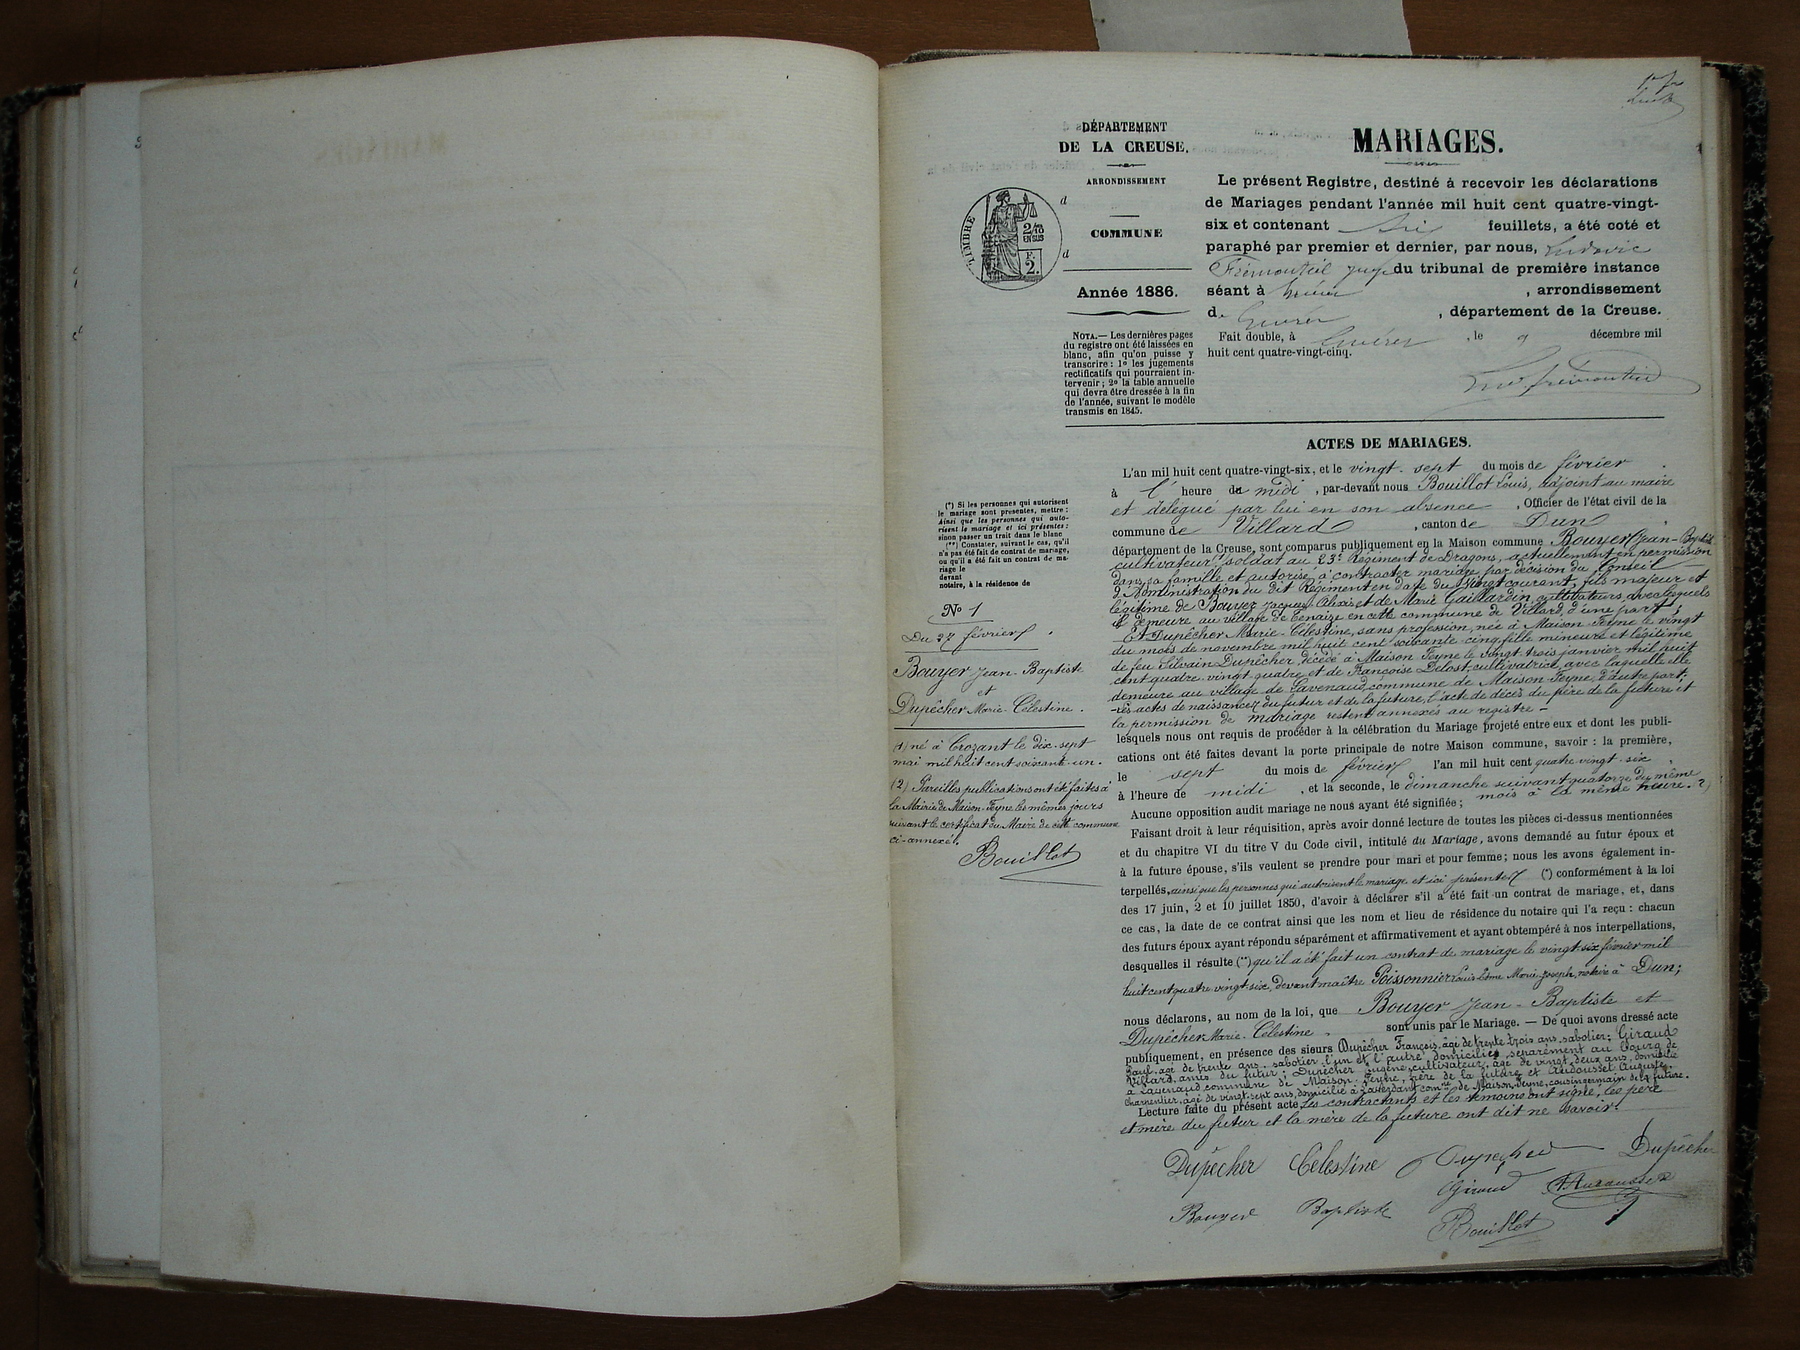 DÉPARTEMENT
DE LA CREUSE.
ARRONDISSEMENT
d
COMMUNE
d
Année 1886.
TIMBRE
2/10
EN SUS
F.
2.
NOTA.— Les dernières pages
du registre ont été laissées en
blanc, afin qu'on puisse y
transcrire : 1º les jugements
rectificatifs qui pourraient in-
tervenir ; 2º la table annuelle
qui devra être dressée à la fin
de l'année, suivant le modèle
transmis en 1845.
MARIAGES.
Le présent Registre, destiné à recevoir les déclarations
de Mariages pendant l'année mil huit cent quatre-vingt-
six et contenant feuillets, a été coté et
paraphé par premier et dernier, par nous, Ludovic
Frémonteil juge du tribunal de première instance
séant à Guéret , arrondissement
de Guéret , département de la Creuse.
Fait double, à Guéret , le 9 décembre mil
huit cent quatre-vingt-cinq.
ACTES DE MARIAGES.
(*) Si les personnes qui autorisent
le mariage sont présentes, mettre :
Ainsi que les personnes qui auto-
risent le mariage et ici présentes :
sinon passer un trait dans le blanc
(**) Constater, suivant le cas, qu'il
n'a pas été fait de contrat de mariage,
ou qu'il a été fait un contrat de ma-
riage le
devant
notaire, à la résidence de
Nº 1
Du 27 février.
Bouyer Jean-Baptiste
et
Dupêcher Marie-Célestine.
(1) né à Crozant le dix-sept
mai mil huit cent soixante-un.
(2) Pareilles publications ont été faites à
la Mairie de Maison-Feyne les mêmes jours
suivant le certificat du Maire de cette commune
ci-annexé.
Bouillot
L'an mil huit cent quatre-vingt-six, et le vingt-sept du mois de février
à l' heure de midi , par-devant nous Bouillot Louis, adjoint au maire
et délégué par lui en son absence , Officier de l'état civil de la
commune de Villard , canton de Dun
département de la Creuse, sont comparus publiquement en la Maison commune Bouyer Jean-Baptiste
cultivateur, soldat au 23e Régiment de Dragons, actuellement en permission
dans sa famille et autorisé à contracter mariage par décision du Conseil
d'Administration du dit Régiment en date du vingt courant, fils majeur et
légitime de Bouyer Jacques Alexis et de Marie Gaillardin, cultivateurs, avec lesquels
il demeure au village de Cenaize en cette commune de Villard, d'une part ;
Et Dupêcher Marie-Célestine, sans profession, née à Maison-Feyne le vingt
du mois de novembre mil huit cent soixante cinq, fille mineure et légitime
de feu Silvain Dupêcher, décédé à Maison Feyne le vingt-trois janvier mil huit
cent quatre-vingt quatre et de Françoise Delost, cultivatrice, avec laquelle elle
demeure au village de Lavenaud, commune de Maison-Feyne, d'autre part ;
-les actes de naissance du futur et de la future, l'acte de décès du père de la future et
la permission de mariage restent annexés au registre -
lesquels nous ont requis de procéder à la célébration du Mariage projeté entre eux et dont les publi-
cations ont été faites devant la porte principale de notre Maison commune, savoir : la première,
le sept du mois de février l'an mil huit cent quatre vingt-six ,
à l'heure de midi , et la seconde, le dimanche suivant quatorze du même
mois à la même heure. 2)
Aucune opposition audit mariage ne nous ayant été signifiée ;
Faisant droit à leur réquisition, après avoir donné lecture de toutes les pièces ci-dessus mentionnées
et du chapitre VI du titre V du Code civil, intitulé du Mariage, avons demandé au futur époux et
à la future épouse, s'ils veulent se prendre pour mari et pour femme ; nous les avons également in-
terpellés, ainsi que les personnes qui autorisent le mariage et ici présentes (*) conformément à la loi
des 17 juin, 2 et 10 juillet 1850, d'avoir à déclarer s'il a été fait un contrat de mariage, et, dans
ce cas, la date de ce contrat ainsi que les nom et lieu de résidence du notaire qui l'a reçu : chacun
des futurs époux ayant répondu séparément et affirmativement et ayant obtempéré à nos interpellations,
desquelles il résulte (**) qu'il a été fait un contrat de mariage le vingt-six février mil
huit cent quatre vingt-six, devant maître Poissonnier Louis Marie-Joseph, notaire à Dun ;
nous déclarons, au nom de la loi, que Bouyer Jean-Baptiste et
Dupêcher Marie-Célestine sont unis par le Mariage. — De quoi avons dressé acte
publiquement, en présence des sieurs Dupêcher François, âgé de trente trois ans, sabotier ; Giraud
Paul, âgé de trente ans, sabotier, l'un et l'autre domiciliés séparément au bourg de
Villard, amis du futur ; Dupêcher Eugène, cultivateur, âgé de vingt-deux ans, domicilié
à Lavenaud, commune de Maison-Feyne, frère de la future et Audousset Auguste,
Charpentier, âgé de vingt-sept ans, domicilié à comne de Maison-Feyne, cousin germain de la future.
Lecture faite du présent acte, les contractants et les témoins ont signé, les père
et mère du futur et la mère de la future ont dit ne savoir.
Dupêcher Célestine Dupêcher Dupêcher
Giraud Audousset
Bouyer Baptiste
Bouillot